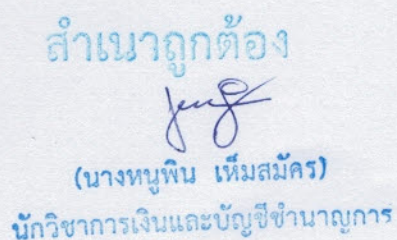 สำเนาถูกต้อง
(นางหนูพิน เห็มสมัคร)
นักวิชาการเงินและบัญชีชำนาญการ